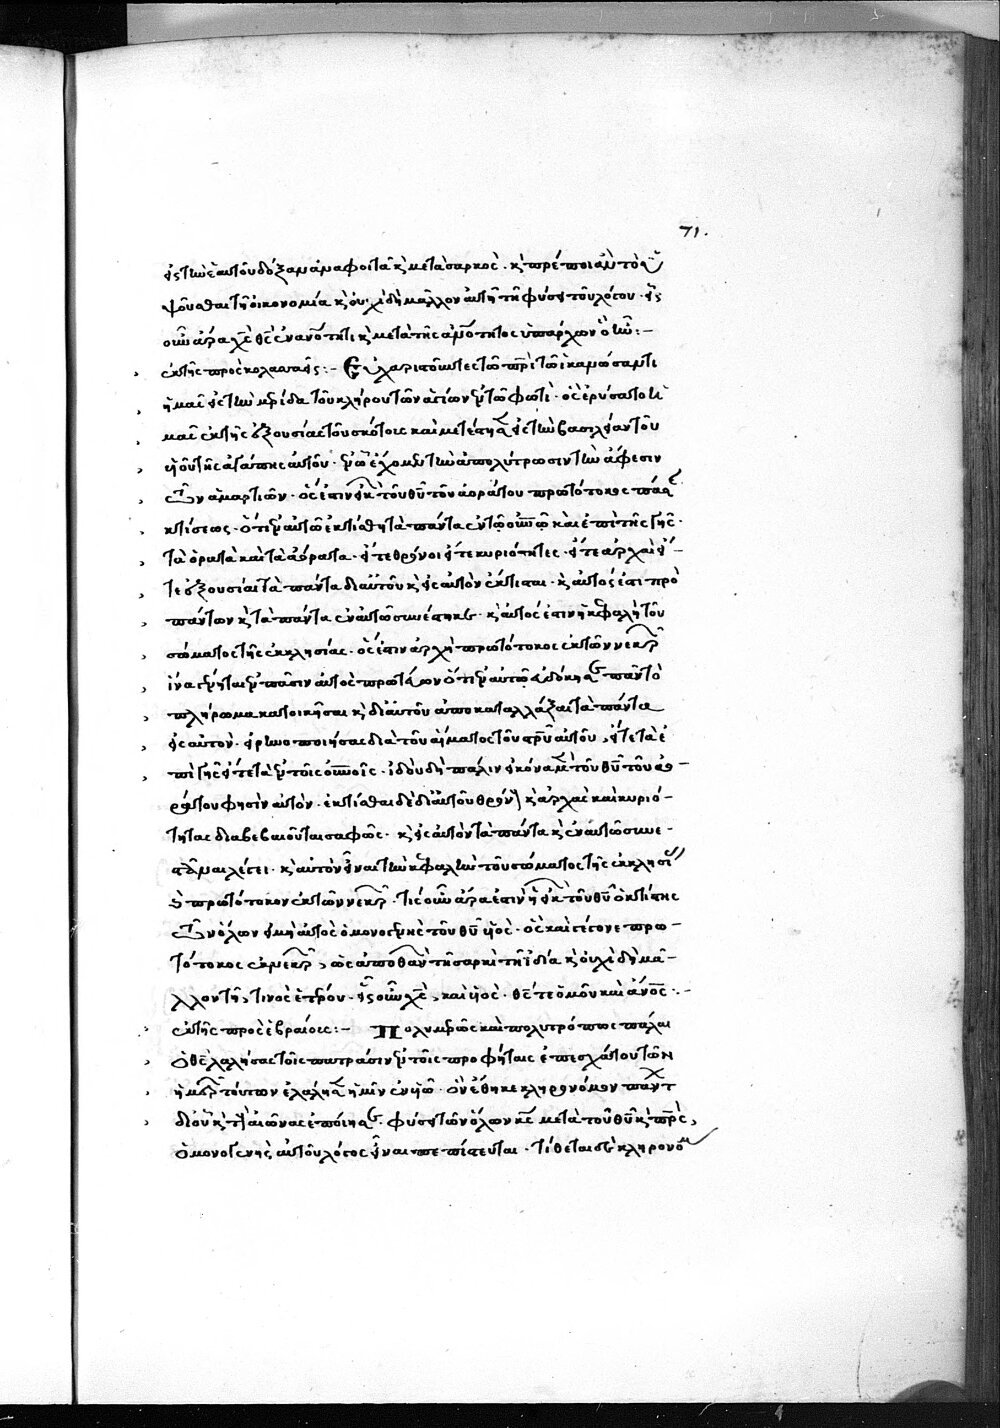 71.
εἰς τὴν ἑαυτοῦ δόξαν ἀναφοιτᾶν κ̀ μετὰ σαρκὸς· κ̀ πρέποι ἂν τὸ
οῦσθαι τῇ οἰκονομίᾳ κ̀ οὐχὶ δὴ μᾶλλον αὐτῇ τῇ φύσει τοῦ λόγου· εἷς
οὖν ἄρα χ̅ς̅ θ̅ς̅ ἐν ἀν̅ο̅τητι κ̀ μετὰ τῆς ἀν̅ο̅τητος ὑπάρχων
ἐκ τῆς πρὸς κολασσαεῖς:– Εὐχαριστοῦντες τῷ π̅ρ̅ὶ τῷ ἱκανώσαντι
ἡμᾶς εἰς τὴν μερίδα τοῦ κλήρου τῶν ἁγίων ἐν τῷ φωτὶ· ὃς ἐρύσατο ἡ
μᾶς ἐκ τῆς ἐξουσίας τοῦ σκότους καὶ μετέστησεν εἰς τὴν βασιλείαν τοῦ
υἱοῦ τῆς ἀγάπης αὐτοῦ· ἐν ᾧ ἔχομεν τὴν ἀπολύτρωσιν τὴν ἄφεσιν
τῶν ἁμαρτιῶν· ὅς ἐστιν εἰκὼν τοῦ θ̅υ̅ τοῦ ἀοράτου πρωτότοκος πάσης
κτίσεως· ὅτι ἐν αὐτῷ ἐκτίσθη τὰ πάντα ἐν τῷ ο̅υ̅ν̅ῷ καὶ ἐπὶ τῆς γῆς·
τὰ ὁρατὰ καὶ τὰ ἀόρατα· εἴτε θρόνοι εἴτε κυριότητες· εἴτε ἀρχαὶ εἴ–
τε ἐξουσίαι τὰ πάντα δι αὐτοῦ κ̀ εἰς αὐτὸν ἔκτισται· κ̀ αὐτός ἐστι πρὸ
πάντων κ̀ τὰ πάντα ἐν αὐτῷ συνέστηκε· κ̀ αὐτός ἐστιν ἡ κεφαλὴ τοῦ
σώματος τῆς ἐκκλησίας· ὅς ἐστιν ἀρχὴ πρωτότοκος ἐκ τῶν νεκρῶν
ἵνα γένηται ἐν πᾶσιν αὐτὸς πρωτεύων ὅτι ἐν αὐτῷ εὐδόκησε πᾶν τὸ
πλήρωμα κατοικῆσαι κ̀ δι αὐτοῦ ἀποκαταλλάξαι τὰ πάντα
εἰς αὐτὸν· εἰρηνοποιήσας διὰ τοῦ αἵματος τοῦ σ̅ρ̅υ̅ αὐτοῦ, εἴτε τὰ ἐ
πὶ γῆς εἴτε τὰ ἐν τοῖς ο̅υ̅ν̅οῖς· ἰδοὺ δὴ πάλιν εἰκόνα μὲν τοῦ θ̅υ̅ τοῦ ἀο–
ράτου φησὶν αὐτὸν· ἐκτίσθαι δὲ δι αὐτοῦ θρόνους κ̀ ἀρχὰς καὶ κυριό–
τητας διαβεβαιοῦται σαφῶς· κ̀ εἰς αὐτὸν τὰ πάντα κ̀ ἐν αὐτῷ συνε–
στάναι λέγει· κ̀ αὐτὸν εἶναι τὴν κεφαλὴν τοῦ σώματος τῆς ἐκκλησίας
κ̀ πρωτότοκον ἐκ τῶν νεκρῶν· τίς οὖν ἄρα ἐστιν ἡ εἰκὼν τοῦ θ̅υ̅ ὁ κτίστης
τῶν ὅλων εἰ μὴ αὐτὸς ὁ μονογενὴς τοῦ θ̅υ̅ υἱὸς· ὃς καὶ γέγονε πρω–
τότοκος ἐκ νεκρῶν, ὡς ἀποθανὼν τῇ σαρκὶ τῇ ἰδίᾳ κ̀ οὐχὶ δὴ μᾶ–
λλον τῇ τινὸς ἑτέρου· εἷς οὖν χ̅ς̅, καὶ υἱὸς· θ̅ς̅ τε ὁμοῦ καὶ ἄν̅ο̅ς·–
ἐκ τῆς πρὸς ἑβραίους:– Πολυμερῶς καὶ πολυτρόπως πάλαι
ὁ θ̅ς̅ λαλήσας τοῖς πατράσιν ἐν τοῖς προφήταις ἐπ ἐσχάτου τῶν
ἡμερῶν τούτων ἐλάλησεν ἡμῖν ἐν υἱῷ· ὃν ἔθηκε κληρονόμον πάντ
δι οὗ κ̀ τοὺς αἰῶνας ἐποίησε· φύσει τῶν ὅλων κ̅ς̅ μετὰ τοῦ θ̅υ̅ κ̀ π̅ρ̅ὸς,
ὁ μονογενὴς αὐτοῦ λόγος εἶναι πεπίστευται· τίθεται δὲ κληρονόμ